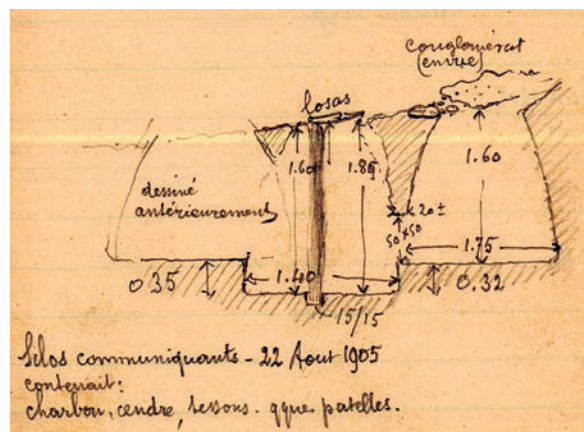 conglomérat
(envire)
losas
1.60
1.85
1.60
dessiné
antérieurement
20±
50x50
1.75
1.40
0 35
0.32
15/15
Silos communiquants - 22 Aout 1905
contenait:
charbon, cendre, tessons. qque patelles.